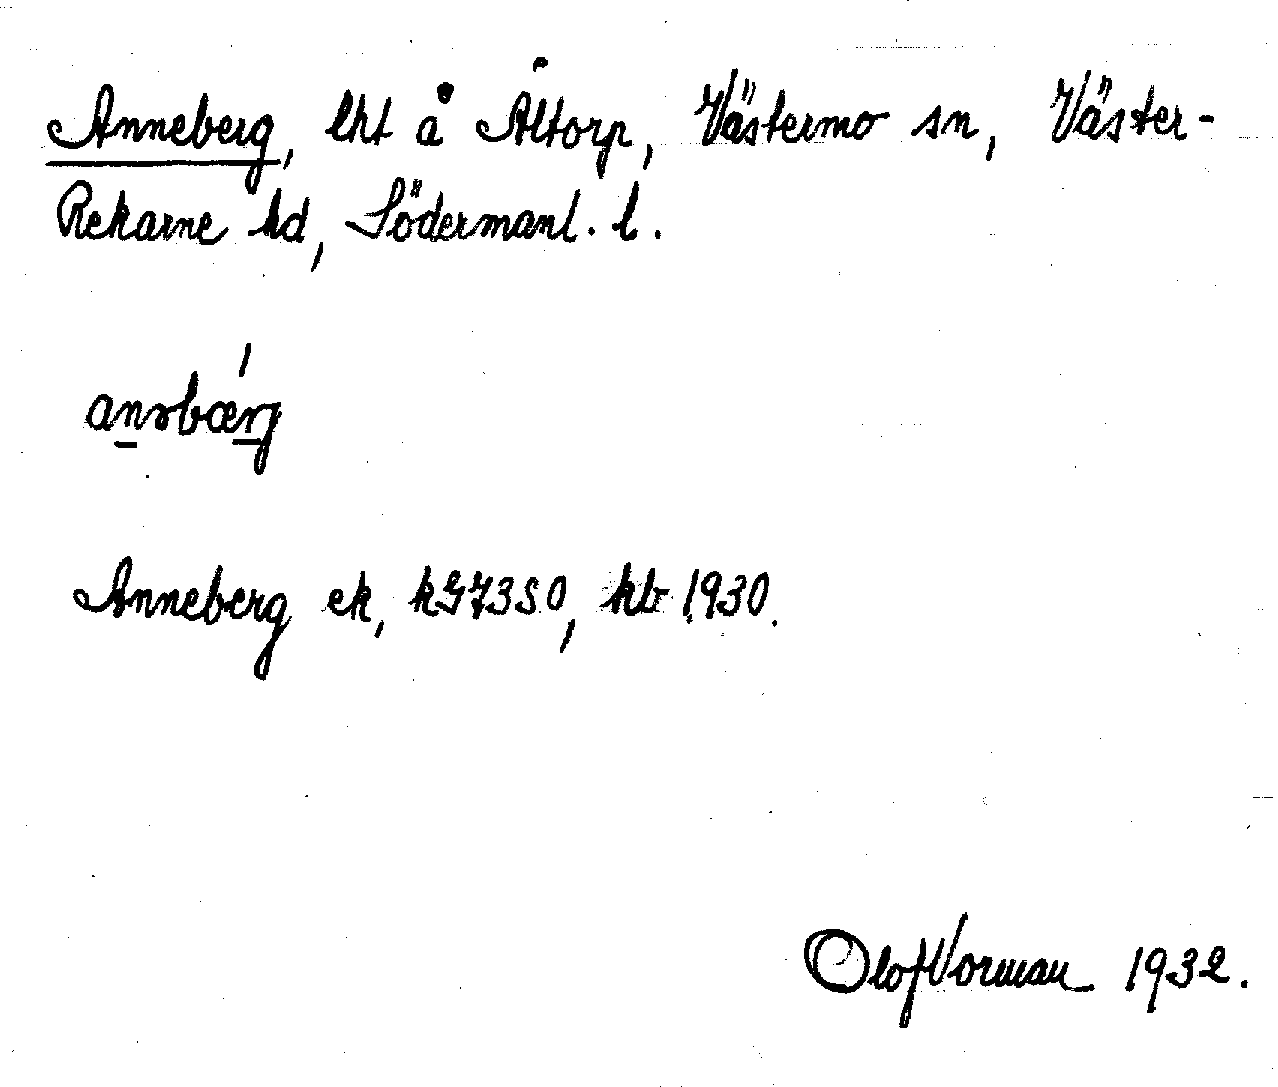 Anneberg, lht å Åltorp, Västermo sn, Väster-
Rekarne hd, Södermanl. l.
anəbærg
Anneberg ek, kG73S0, kb 1930.
Olof Vorman 1932.